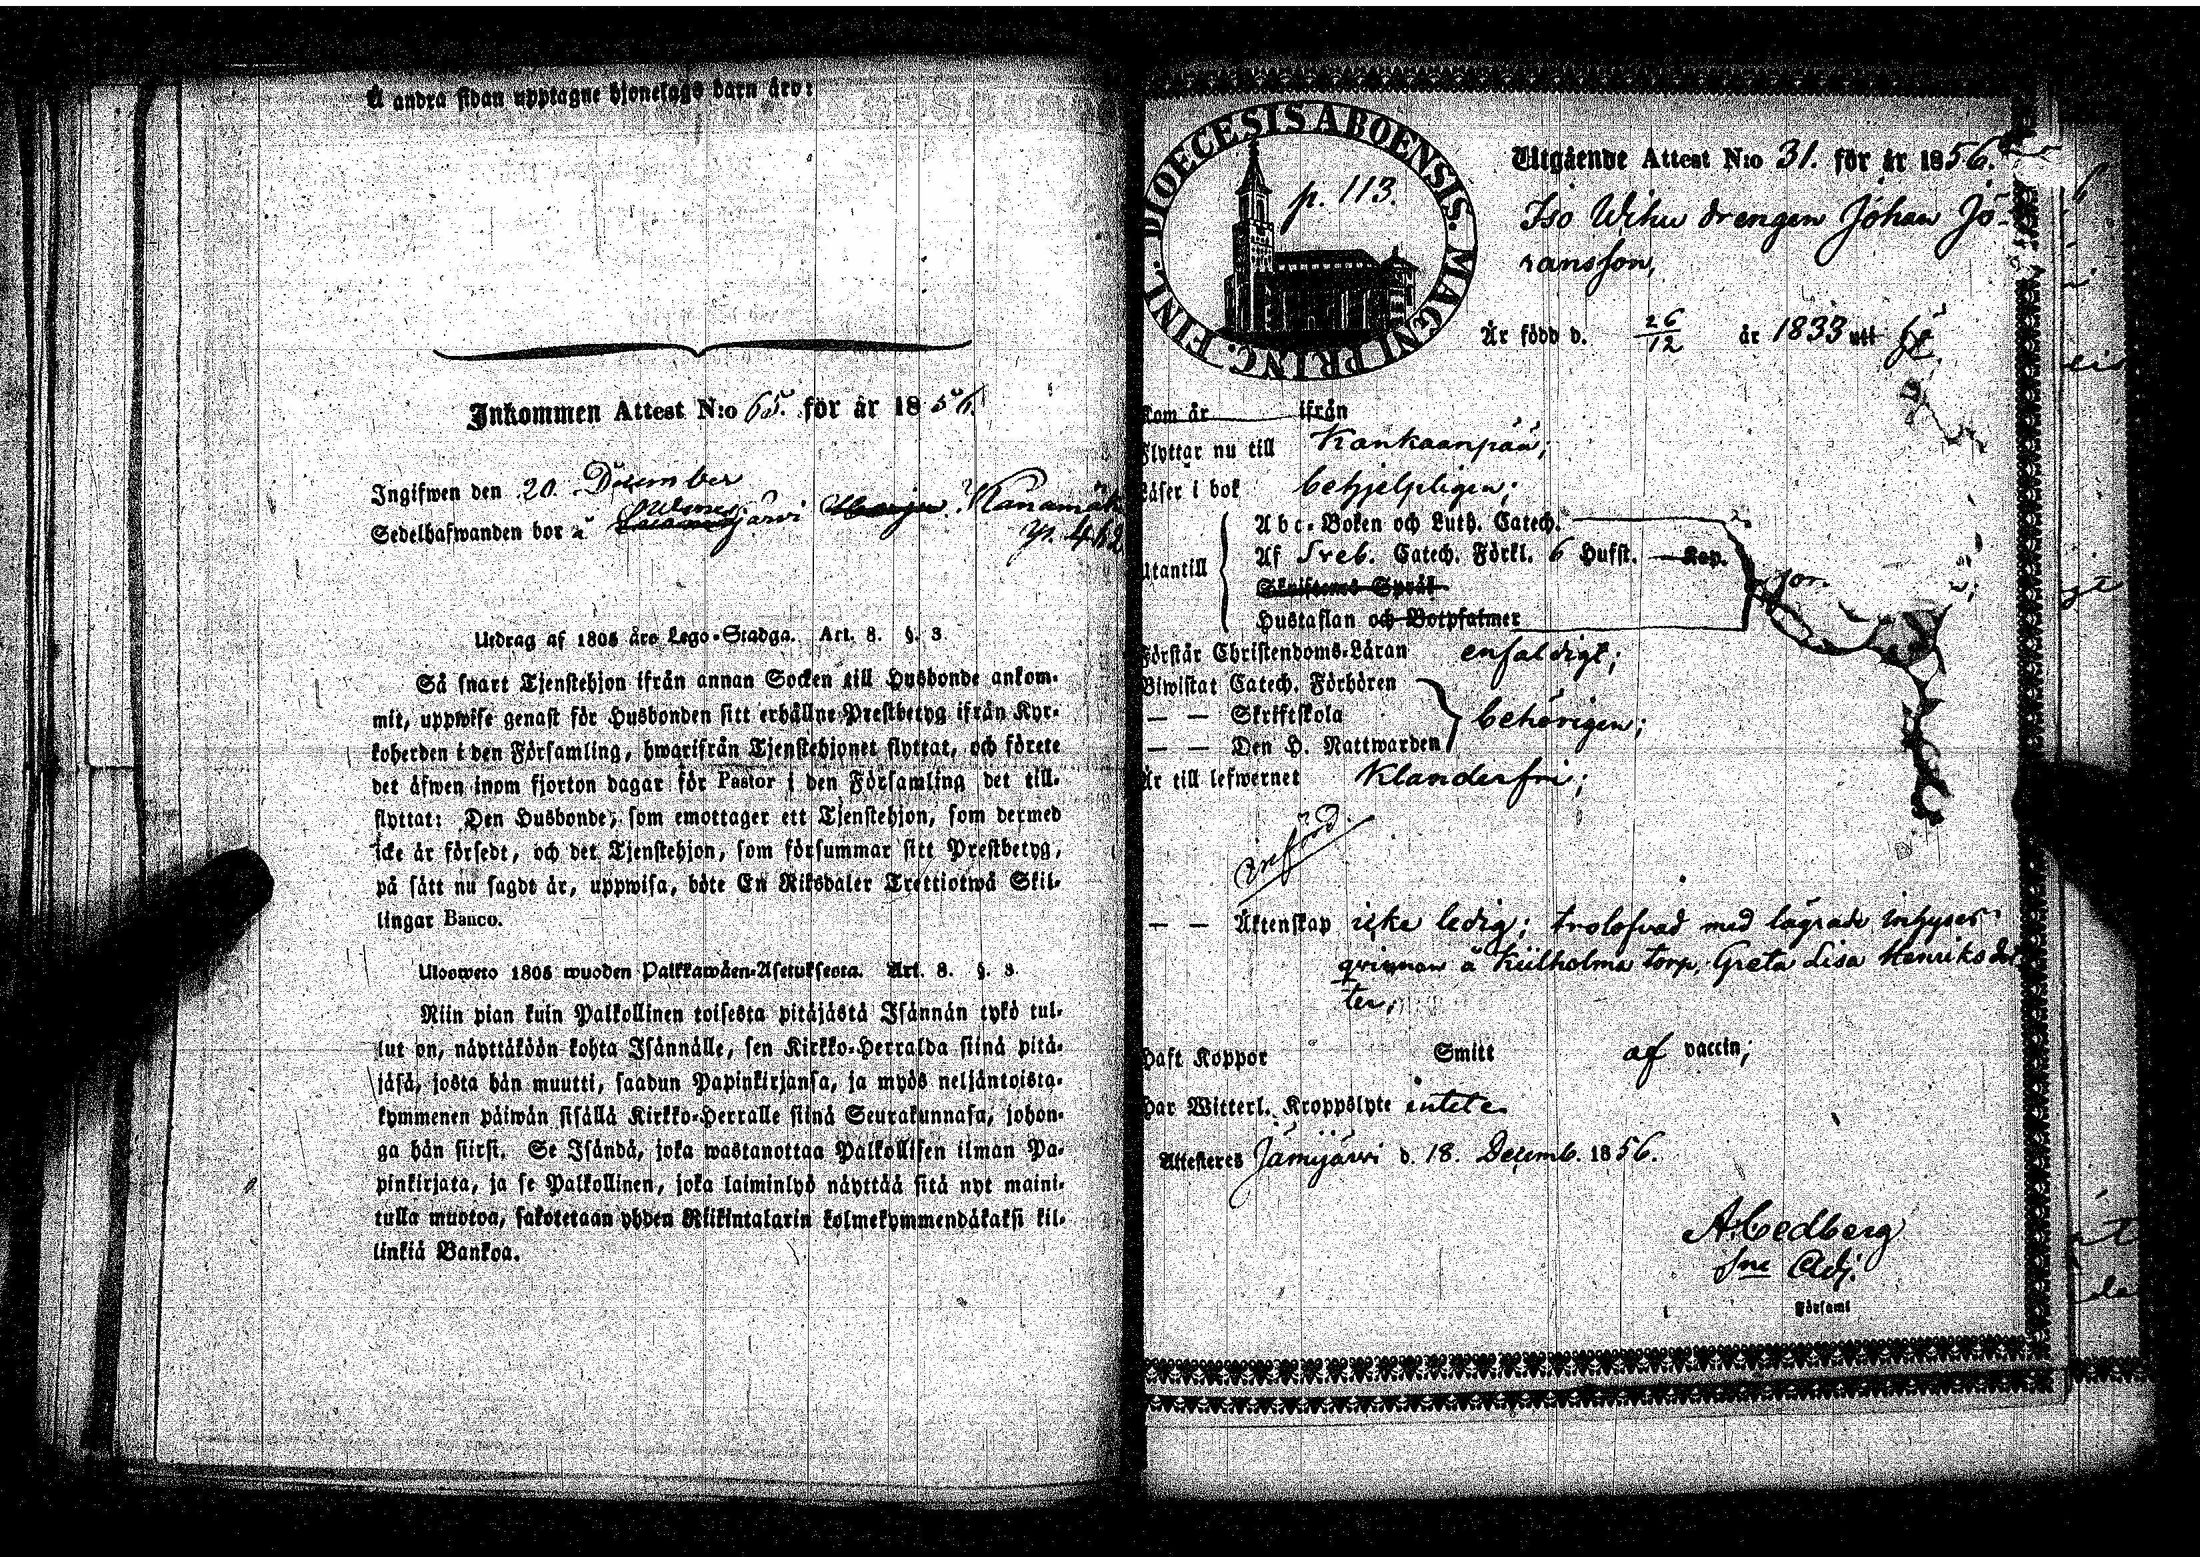 Å andra sidan upptagne hjonelags barn äro:
Inkommen Attest N:o 65. för år 1856.
Ingifwen den 20. December
Sedelhafwanden bor
p. 462
Utdrag af 1805 års Lego-Stadga. Art. 8. §. 3
Så snart Tjenstehjon ifrån annan Socken till Husbonde ankom-
mit, uppwise genast för Husbonden sitt erhållne Prestbetyg ifrån Kyr-
koherden i den Församling, hwarifrån Tjenstehjonet flyttat, och förete
det äfwen inom fjorton dagar för Pastor i den Församling det till-
flyttat: Den Husbonde, som emottager ett Tjenstehjon, som dermed
icke är försedt, och det Tjenstehjon, som försummar sitt Prestbetyg,
på sätt nu sagdt är, uppwisa, böte En Riksdaler Trettiotwå Skil-
lingar Banco.
Uloswето 1805 wuoden Palkkawäen-Asetuksesta. Art. 8. §. 3
Niin pian kuin Palkollinen toisesta pitäjästä Isännän tykö tul-
lut on, näyttäköön kohta Isännälle, sen Kirkko-Herralda siinä pitä-
jäsä, josta hän muutti, saadun Papinkirjansa, ja myös neljäntoista-
kymmenen päiwän sisällä Kirkko-Herralle siinä Seurakunnasa, johon-
ga hän siirsi. Se Isändä, joka wastanottaa Palkollisen ilman Pa-
pinkirjata, ja se Palkollinen, joka laiminlyö näyttää sitä nyt maini-
tulla muotoa, sakotetaan yhden Riikintalarin kolmekymmendäkaksi kil-
linkiä Bankoa.
DIOECESIS ABOENSIS. MAGNI PRINC. FINL.
p. 113.
Utgående Attest N:o 31. för år 1856.
Iso Wihu drengen Johan Jö-
ransson,
Är född d. 26/12 år 1833 uti
Kom år ifrån
Flyttar nu till Kankaanpää;
Läser i bok behjelpligen;
Utantill
Abc-Boken och Luth. Catech.
Af Sveb. Catech. Förkl. 6 Hufst. Kap.
Skriftenes Språk
Hustaflan och Botpsalmer
Förstår Christendoms-Läran enfaldigt;
Biwistat Catech. Förhören
— — Skriftskola behörigen;
— — Den H. Nattwarden
Är till lefwernet Klanderfri;
införd
— — Äktenskap icke ledig; trolofvad med lägrade inhyses-
qvinnan å Kiilholma torp, Greta Lisa Henriksdot-
ter;
Haft Koppor Smitt af vaccin;
Har Witterl. Kroppslyte intet
Attesteres Jämijärvi d. 18. Decemb. 1856.
A. Cedberg
Adj.
Församl